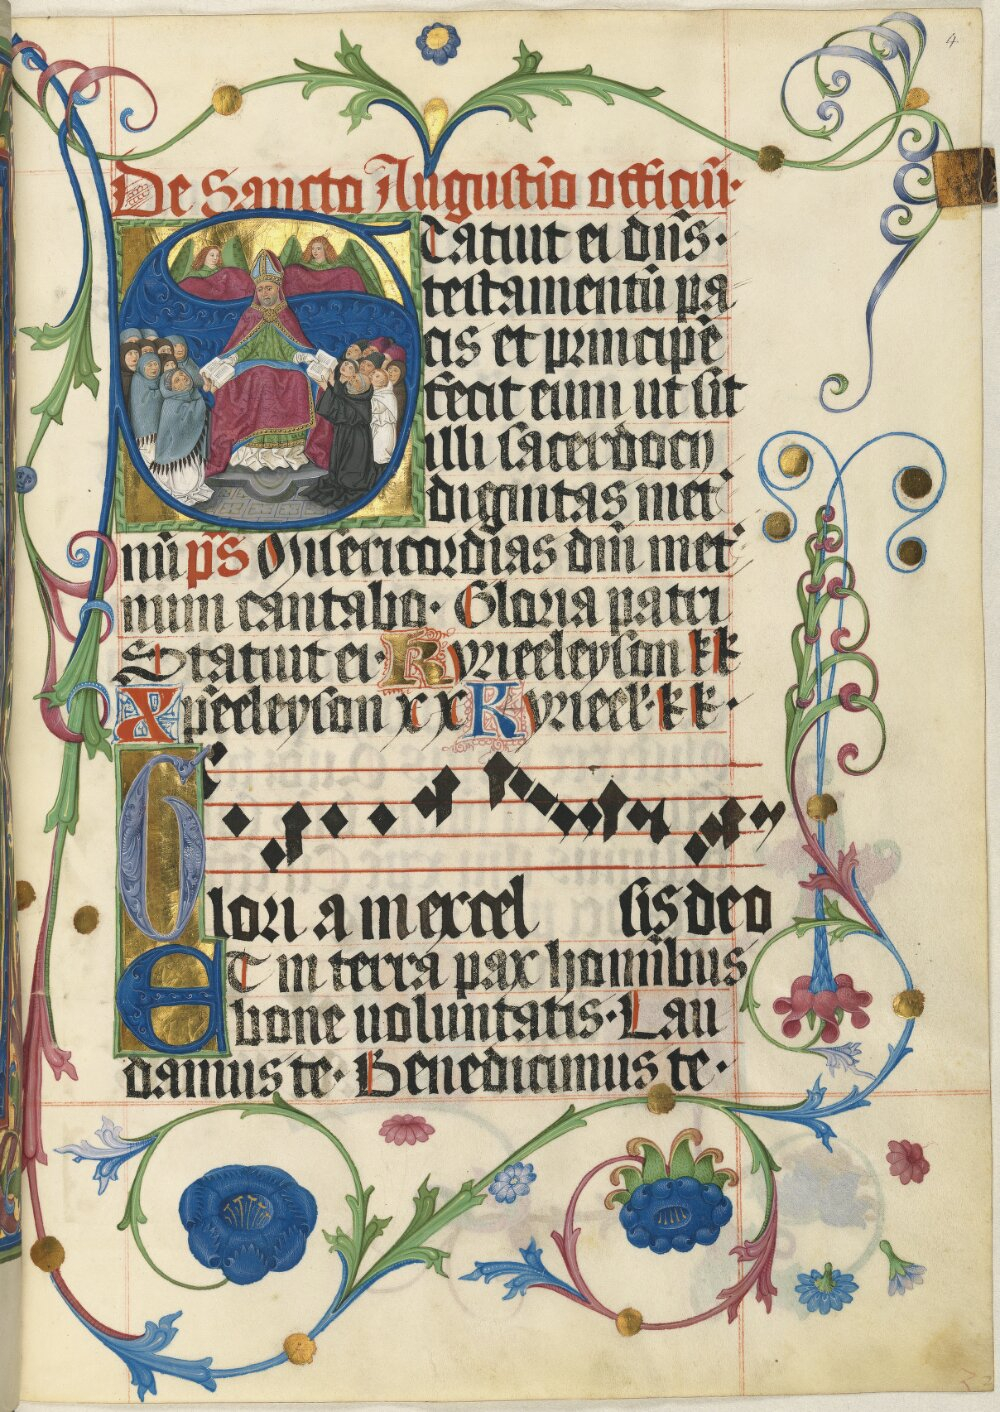 4
De Sancto Augustīo officiū·
Statuit ei dn̄s·
testamentū pa
cis et principē
fecit eum ut sit
illi sacerdocij
dignitas in et̄
nū p̄s Misericordias dn̄i in et̄
num cantabo· Gloria patri
Statuit ei· Kyrieeleyson k k
Xp̄eeleyson x x Kyrieel· k k·
Glori a in excel sis deo
ET in terra pax homīibus
bone uoluntatis· Lau
damus te· Benedicimus te·